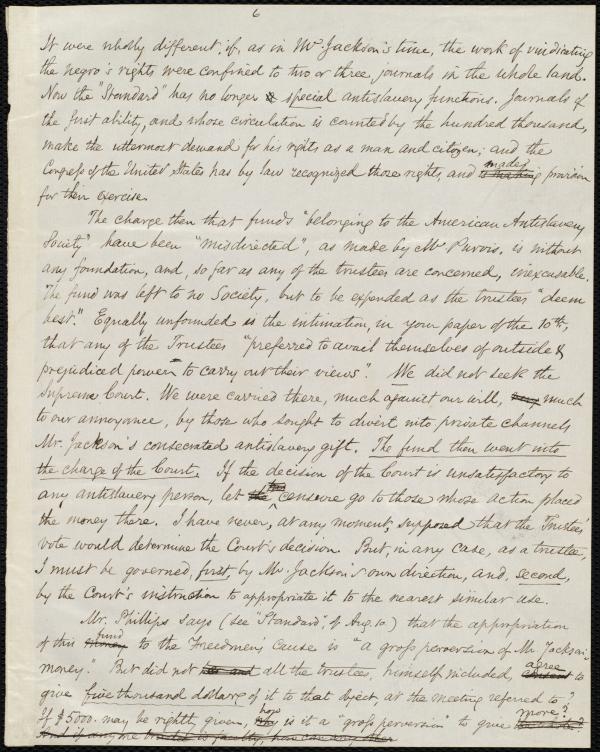 6
It were wholly different, if, as in Mr. Jackson's time, the work of vindicating
the negro's rights were confined to two or three journals in the whole land.
Now the "Standard" has no longer special antislavery functions. Journals of
the first ability, and whose circulation is counted by the hundred thousand,
make the uttermost demand for his rights as a man and citizen; and the
Congress of the United States has by law recognized those rights, and made provision
for their exercise.
The charge then that funds "belonging to the American Antislavery
Society" have been "misdirected", as made by Mr. Purvis, is without
any foundation, and, so far as any of the trustees are concerned, inexcusable.
The fund was left to no Society, but to be expended as the trustees "deem
best." Equally unfounded is the intimation, in your paper of the 10th,
that any of the Trustees "preferred to avail themselves of outside &
prejudiced power to carry out their views". We did not seek the
Supreme Court. We were carried there, much against our will, much
to our annoyance, by those who sought to divert into private channels
Mr. Jackson's consecrated antislavery gift. The fund then went into
the charge of the Court. If the decision of the Court is unsatisfactory to
any antislavery person, let the censure go to those whose action placed
the money there. I have never, at any moment, supposed that the Trustees'
vote would determine the Court's decision. But, in any case, as a trustee,
I must be governed, first, by Mr. Jackson's own direction, and, second,
by the Court's instruction to appropriate it to the nearest similar use.
Mr. Phillips says (see "Standard" of Aug. 10) that the appropriation
of this money fund to the Freedmen's cause is "a gross perversion of Mr. Jackson's
money." But did not all the trustees, himself included, consent agree to
give five thousand dollars of it to that object, at the meeting referred to?
If $5000. may be rightly given, why how is it a "gross perversion" to give more?